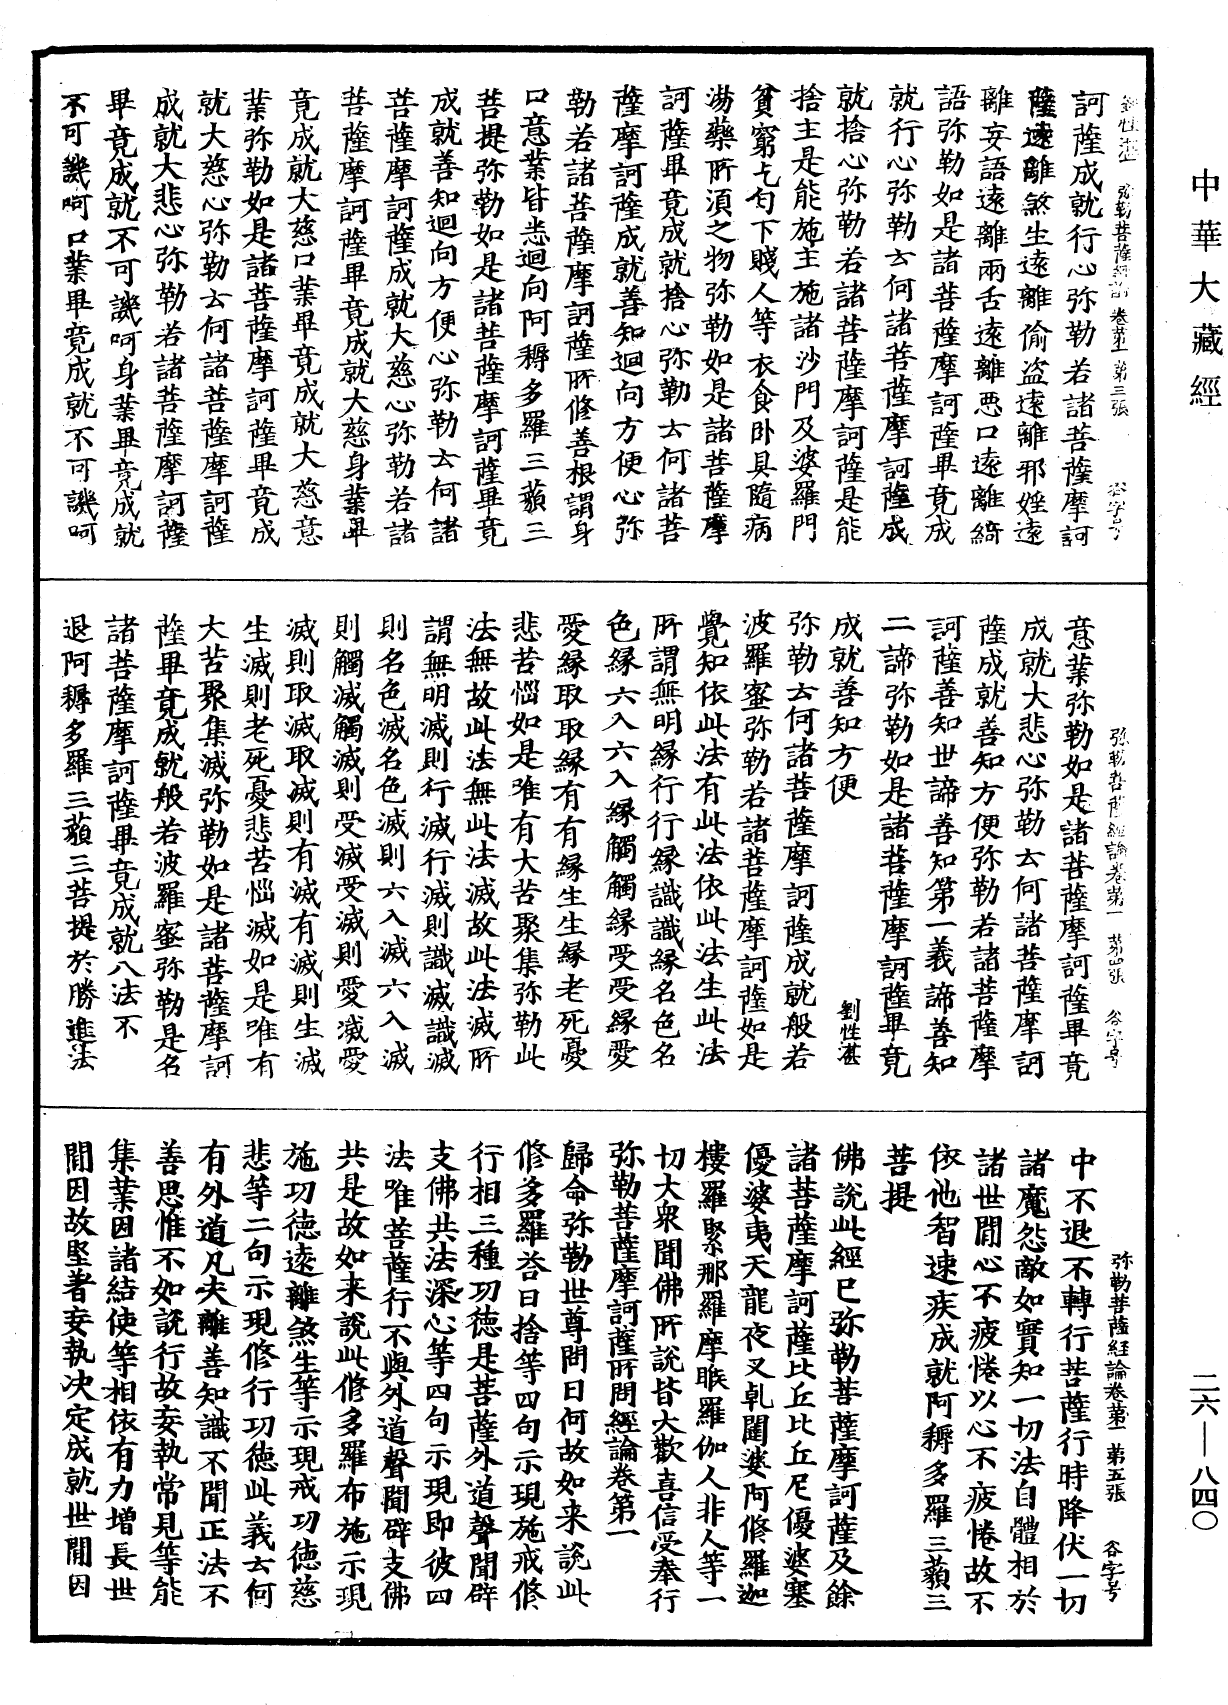 中華大藏經
弥勒菩薩經論卷第一 第三張 谷字号
訶薩成就行心弥勒若諸菩薩摩訶
薩遠離煞生遠離偷盗遠離邪婬遠
離妄語遠離兩舌遠離惡口遠離綺
語弥勒如是諸菩薩摩訶薩畢竟成
就行心弥勒云何諸菩薩摩訶薩成
就捨心弥勒若諸菩薩摩訶薩是能
捨主是能施主施諸沙門及婆羅門
貧窮乞匄下賤人等衣食卧具隨病
湯藥所須之物弥勒如是諸菩薩摩
訶薩畢竟成就捨心弥勒云何諸菩
薩摩訶薩成就善知迴向方便心弥
勒若諸菩薩摩訶薩所修善根謂身
口意業皆悉迴向阿耨多羅三藐三
菩提弥勒如是諸菩薩摩訶薩畢竟
成就善知迴向方便心弥勒云何諸
菩薩摩訶薩成就大慈心弥勒若諸
菩薩摩訶薩畢竟成就大慈身業畢
竟成就大慈口業畢竟成就大慈意
業弥勒如是諸菩薩摩訶薩畢竟成
就大慈心弥勒云何諸菩薩摩訶薩
成就大悲心弥勒若諸菩薩摩訶薩
畢竟成就不可譏呵身業畢竟成就
不可譏呵口業畢竟成就不可譏呵
弥勒菩薩經論卷第一 第四張 谷字号
意業弥勒如是諸菩薩摩訶薩畢竟
成就大悲心弥勒云何諸菩薩摩訶
薩成就善知方便弥勒若諸菩薩摩
訶薩善知世諦善知第一義諦善知
二諦弥勒如是諸菩薩摩訶薩畢竟
成就善知方便 劉性湛
弥勒云何諸菩薩摩訶薩成就般若
波羅蜜弥勒若諸菩薩摩訶薩如是
覺知依此法有此法依此法生此法
所謂無明緣行行緣識識緣名色名
色緣六入六入緣觸觸緣受受緣愛
愛緣取取緣有有緣生生緣老死憂
悲苦惱如是唯有大苦聚集弥勒此
法無故此法無此法滅故此法滅所
謂無明滅則行滅行滅則識滅識滅
則名色滅名色滅則六入滅六入滅
則觸滅觸滅則受滅受滅則愛滅愛
滅則取滅取滅則有滅有滅則生滅
生滅則老死憂悲苦惱滅如是唯有
大苦聚集滅弥勒如是諸菩薩摩訶
薩畢竟成就般若波羅蜜弥勒是名
諸菩薩摩訶薩畢竟成就八法不
退阿耨多羅三藐三菩提於勝進法
弥勒菩薩經論卷第一 第五張 谷字号
中不退不轉行菩薩行時降伏一切
諸魔怨敵如實知一切法自體相於
諸世間心不疲惓以心不疲惓故不
依他智速疾成就阿耨多羅三藐三
菩提
佛說此經已弥勒菩薩摩訶薩及餘
諸菩薩摩訶薩比丘比丘尼優婆塞
優婆夷天龍夜叉乹闥婆阿脩羅迦
樓羅緊那羅摩睺羅伽人非人等一
切大衆聞佛所說皆大歡喜信受奉行
弥勒菩薩摩訶薩所問經論卷第一
歸命弥勒世尊問曰何故如来說此
修多羅荅曰捨等四句示現施戒修
行相三種功德是菩薩外道聲聞辟
支佛共法深心等四句示現即彼四
法唯菩薩行不與外道聲聞辟支佛
共是故如来說此修多羅布施示現
施功德遠離煞生等示現戒功德慈
悲等二句示現修行功德此義云何
有外道凡夫離善知識不聞正法不
善思惟不如說行故妄執常見等能
集業因諸結使等相依有力增長世
間因故堅著妄執决定成就世間因
二六—八四〇